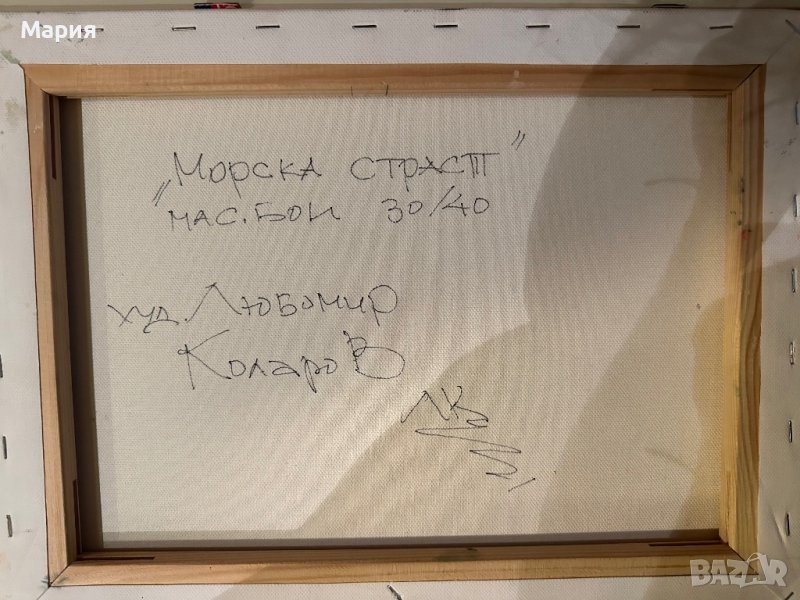 Мария
„Морска страст”
мас. бои 30/40
худ. Любомир
Коларов
ЛК
BAZAR